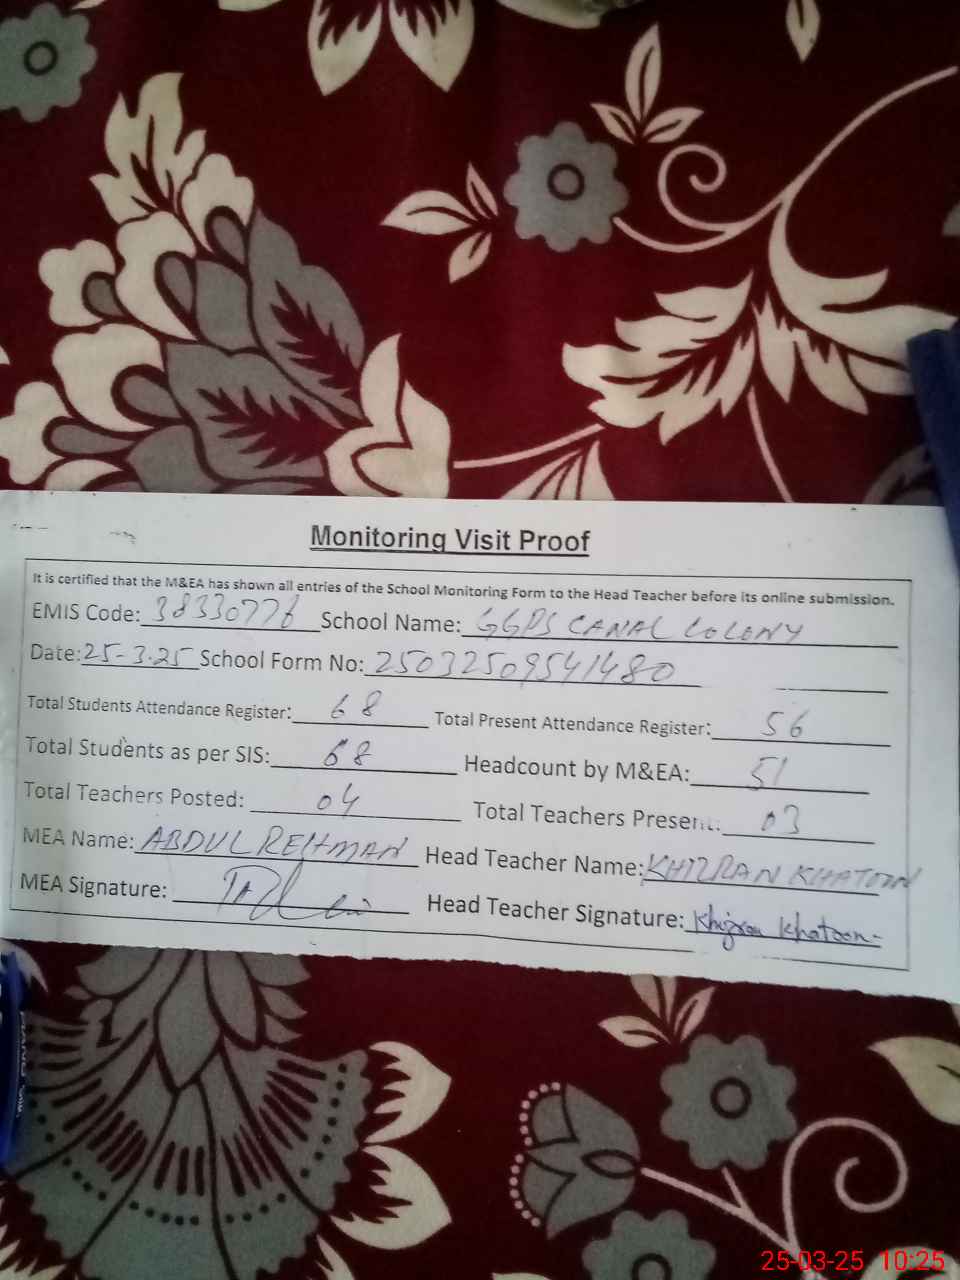 Monitoring Visit Proof
It is certified that the M&EA has shown all entries of the School Monitoring Form to the Head Teacher before its online submission.
EMIS Code: 38330776 School Name: GGPS CANAL COLONY
Date: 25-3.25 School Form No: 25032509541480
Total Students Attendance Register: 68 Total Present Attendance Register: 56
Total Students as per SIS: 68 Headcount by M&EA: 51
Total Teachers Posted: 04 Total Teachers Present: 03
MEA Name: ABDUL REHMAN Head Teacher Name: KHIZRAN KHATOON
MEA Signature: Head Teacher Signature: Khizran Khatoon
25-03-25 10:25